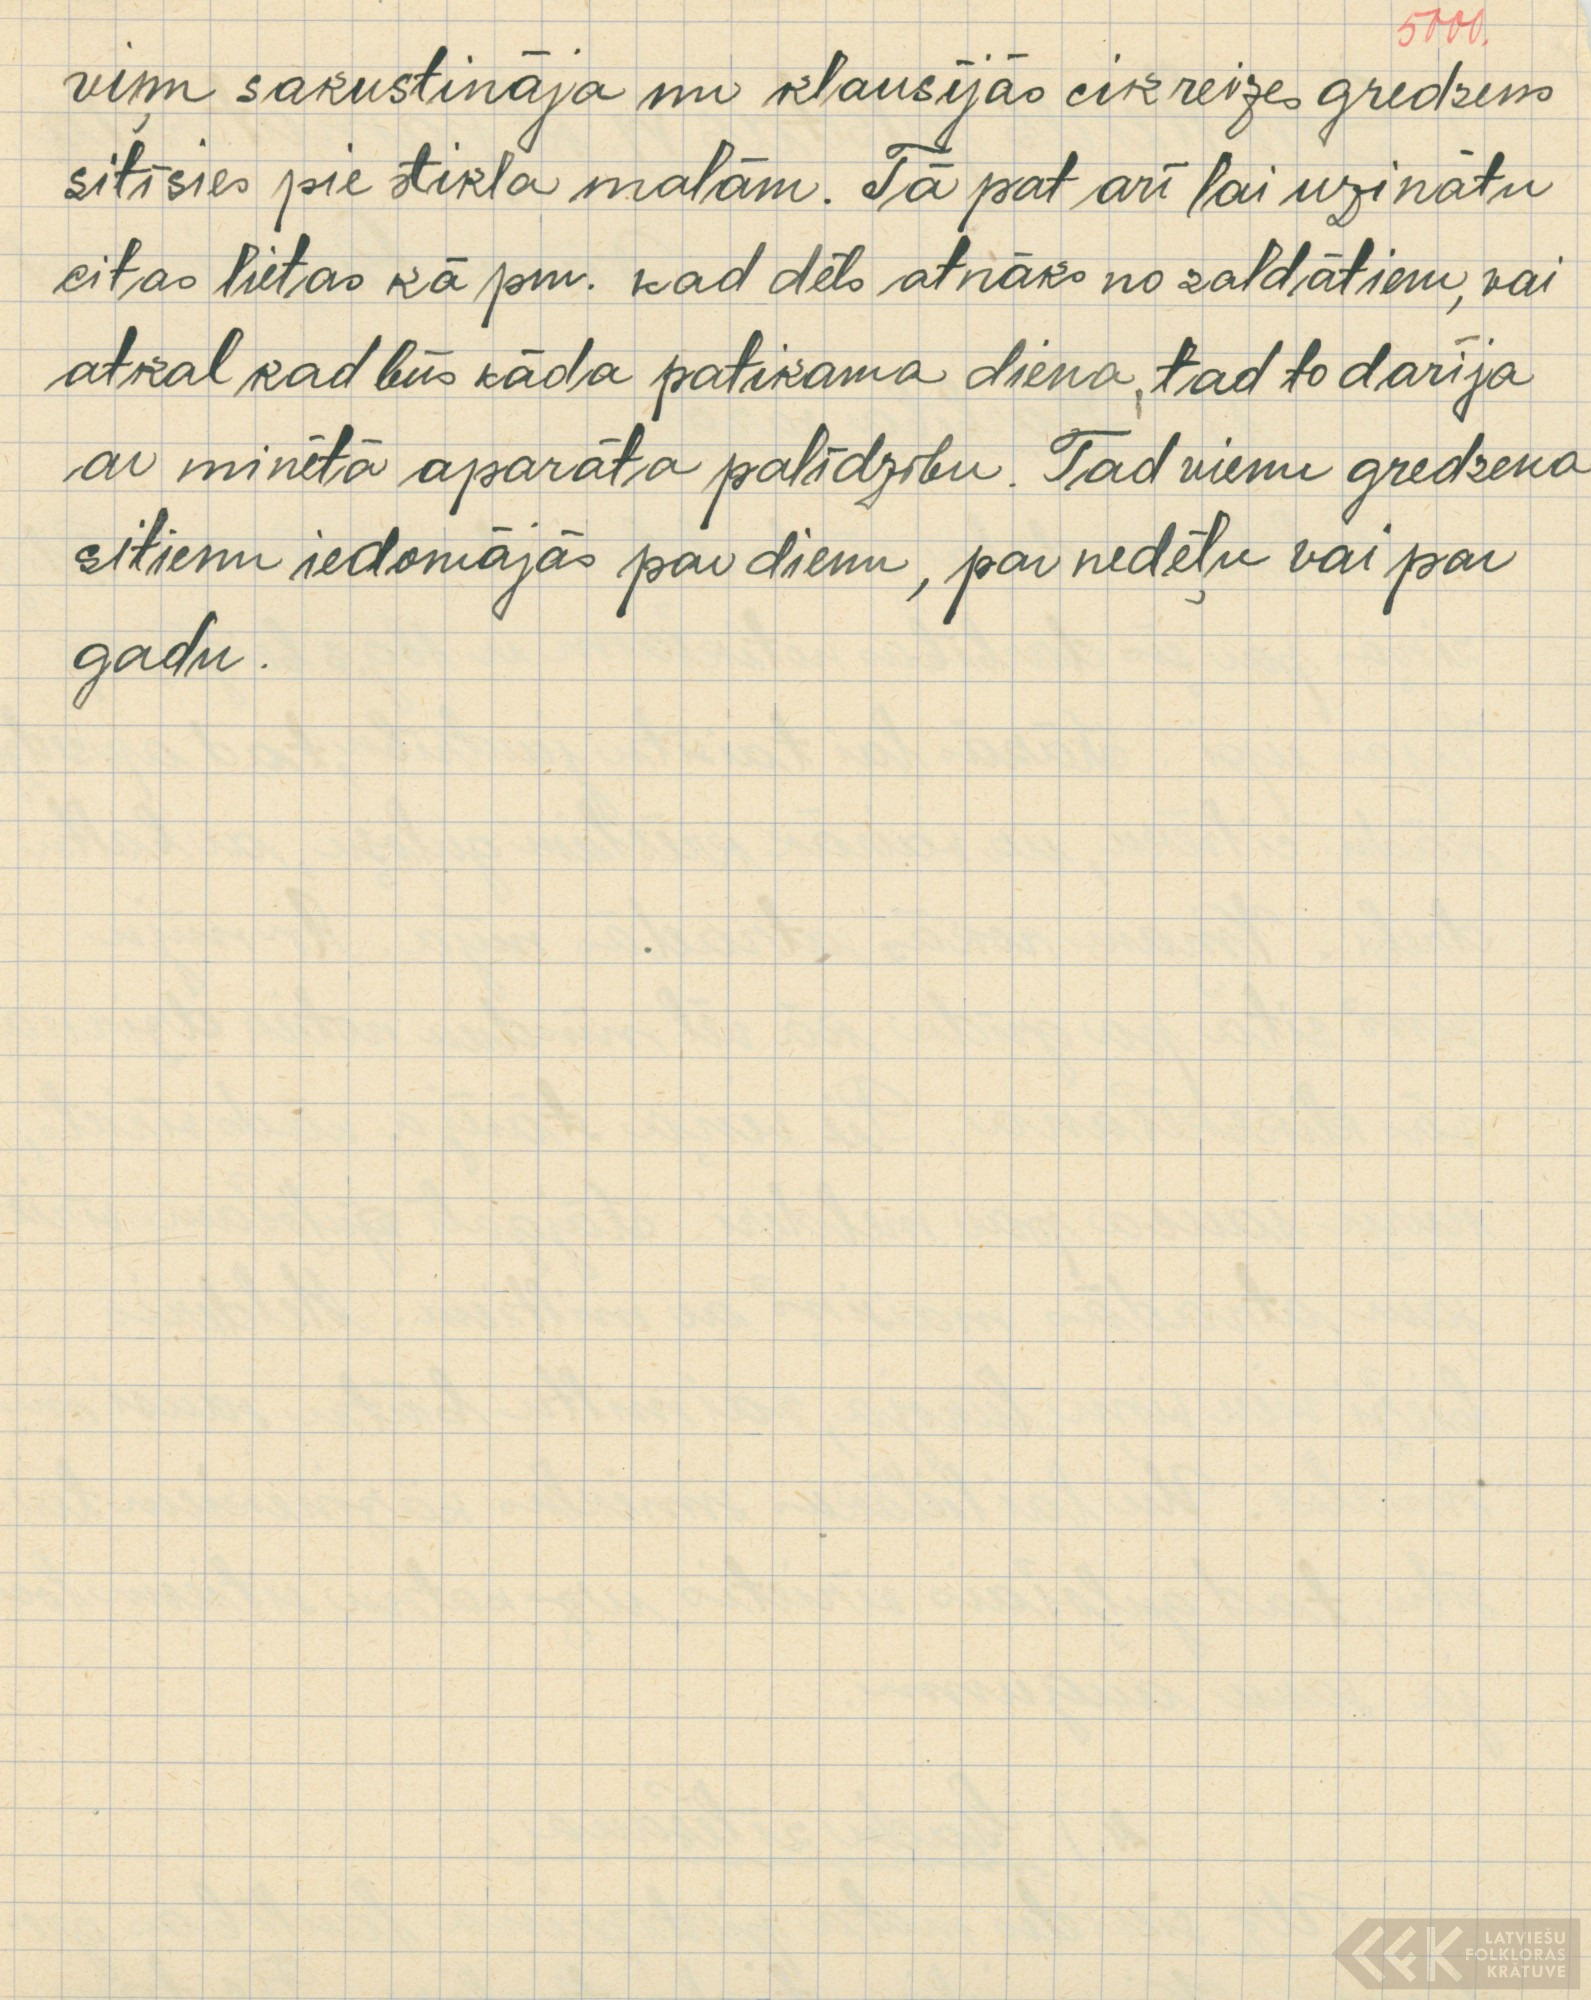 5000.
viņu sakustināja un klausījās cikreizes gredzens
sitīsies pie stikla malām. Tā pat arī lai uzinātu
citas lietas kā pm. kad dēls atnāks no zaldātiem, vai
atkal kad būs kāda patikama diena, tad to darīja
ar minētā aparāta palīdzību. Tad vienu gredzena
sitienu iedomājās par dienu, par nedēļu vai par
gadu.
LATVIEŠU
FOLKLORAS
KRĀTUVE